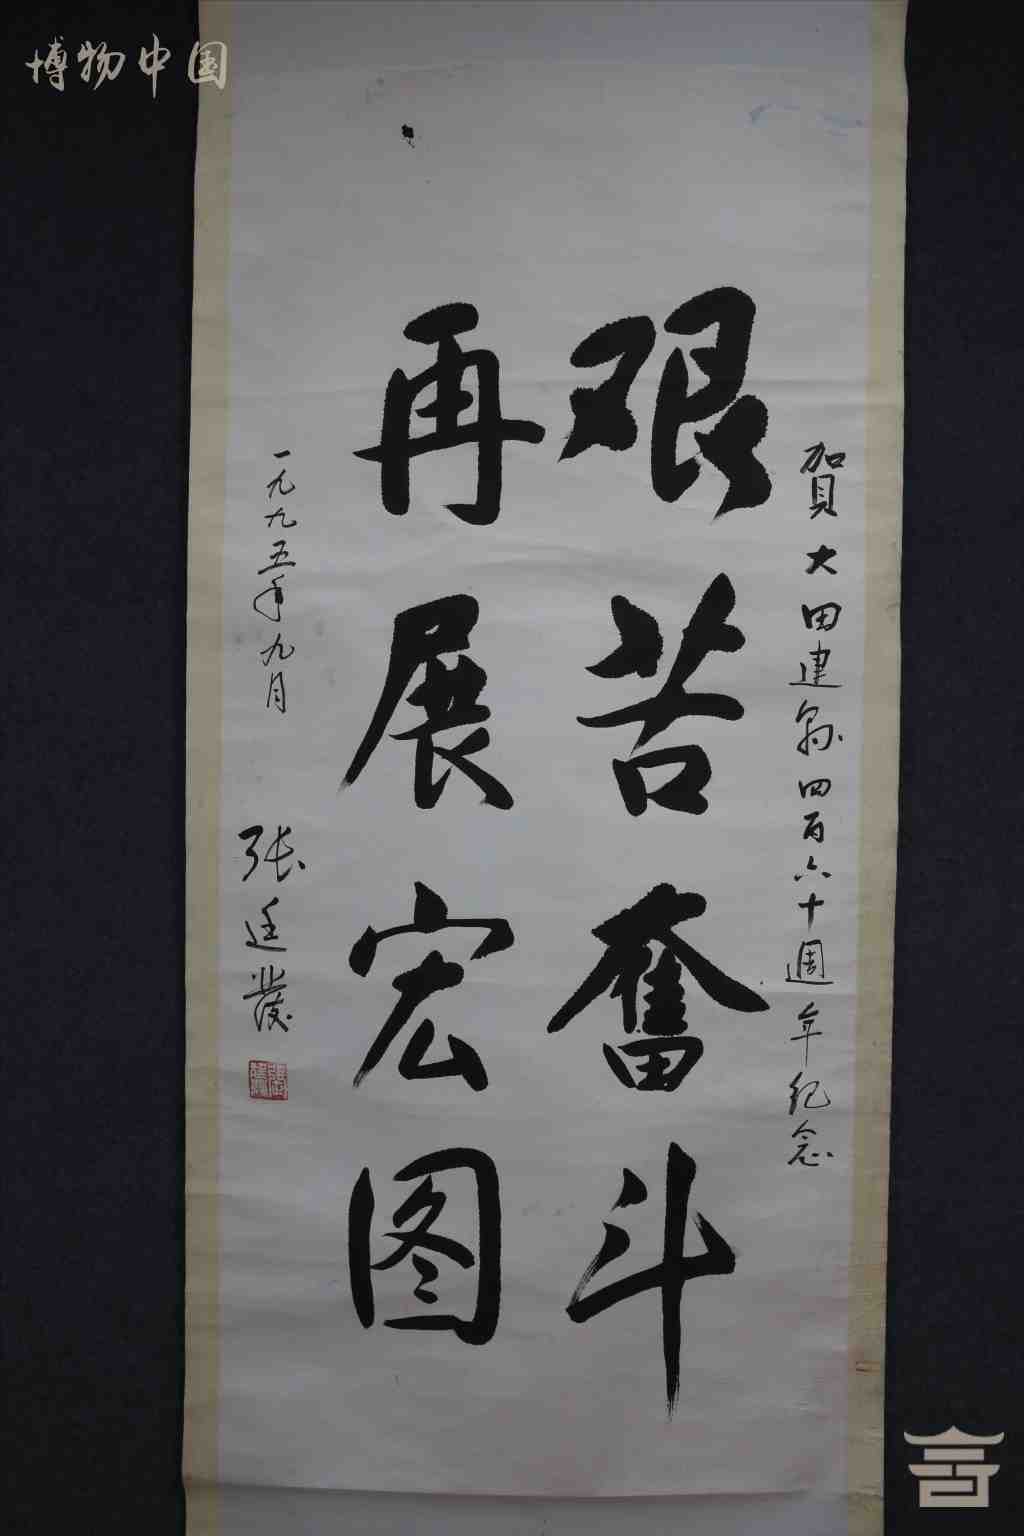 博物中国
賀大田建县四百六十週年纪念
艰苦奮斗
再展宏图
一九九五年九月
张廷發